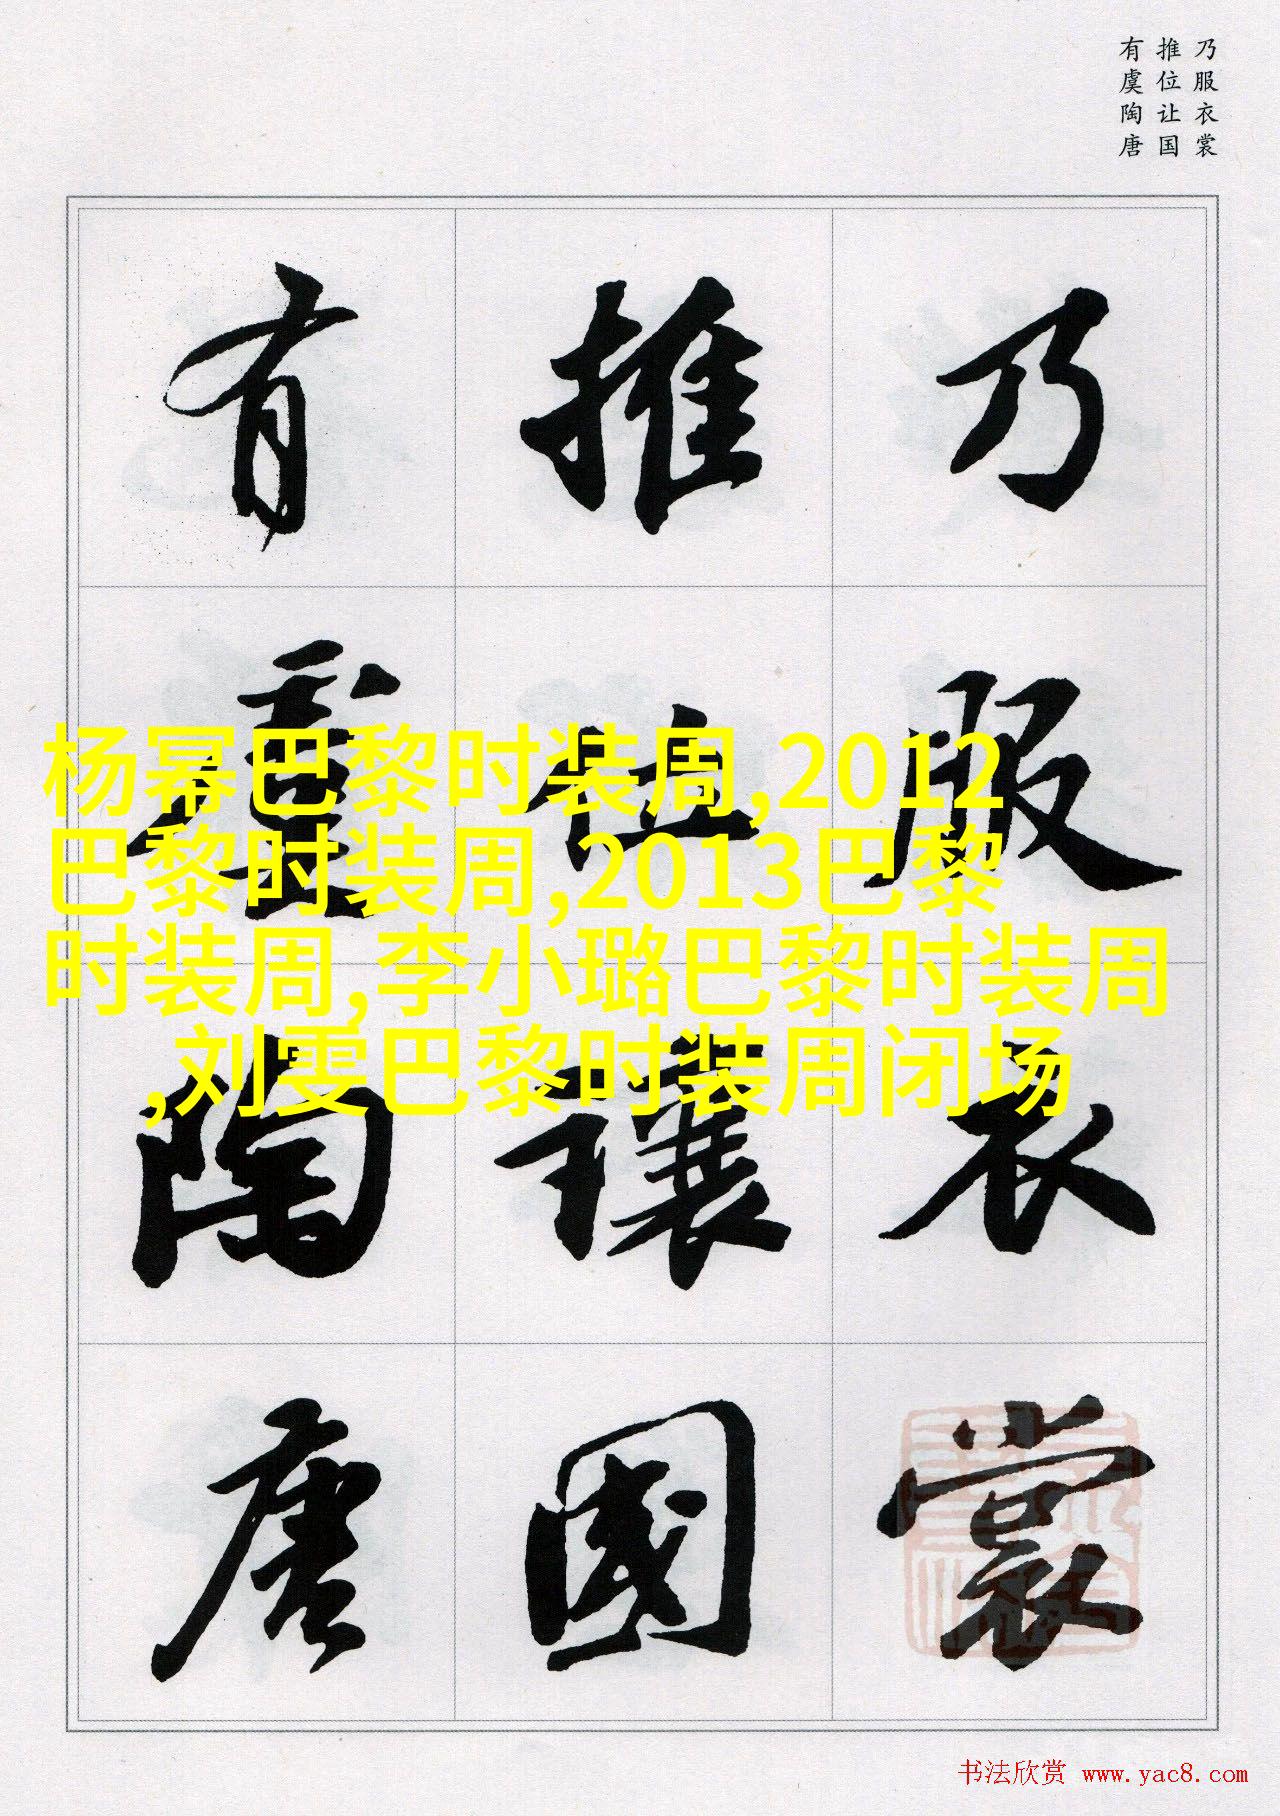 乃服衣裳
推位让国
有虞陶唐
乃服衣裳
推位讓國
有虞陶唐
杨幂巴黎时装周,2012
巴黎时装周,2013巴黎
时装周,李小璐巴黎时装周
,刘雯巴黎时装周闭场
书法欣赏 www.yac8.com